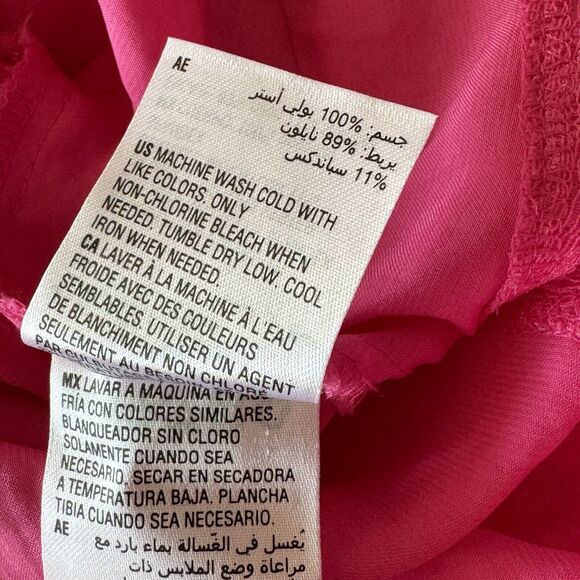 AE
جسم: %100 بولي أستر
بربط: %89 نايلون
%11 سباندكس
US MACHINE WASH COLD WITH
LIKE COLORS. ONLY
NON-CHLORINE BLEACH WHEN
NEEDED. TUMBLE DRY LOW. COOL
IRON WHEN NEEDED.
CA LAVER À LA MACHINE À L'EAU
FROIDE AVEC DES COULEURS
SEMBLABLES. UTILISER UN AGENT
DE BLANCHIMENT NON CHLORÉ
SEULEMENT AU
MX LAVAR A MAQUINA EN
FRÍA CON COLORES SIMILARES.
BLANQUEADOR SIN CLORO
SOLAMENTE CUANDO SEA
NECESARIO. SECAR EN SECADORA
A TEMPERATURA BAJA. PLANCHA
TIBIA CUANDO SEA NECESARIO.
AE
يُغسل في الغسالة بماء بارد مع
مراعاة وضع الملابس ذات